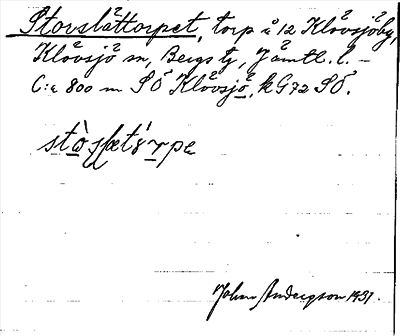 Storslåttorpet, torp å 12 Klövsjöby,
Klövsjö sn, Bergs tj, Jämtl. l. –
C:a 800 m SÖ Klövsjö, kG72 SÖ.
Johan Anderson 1931.